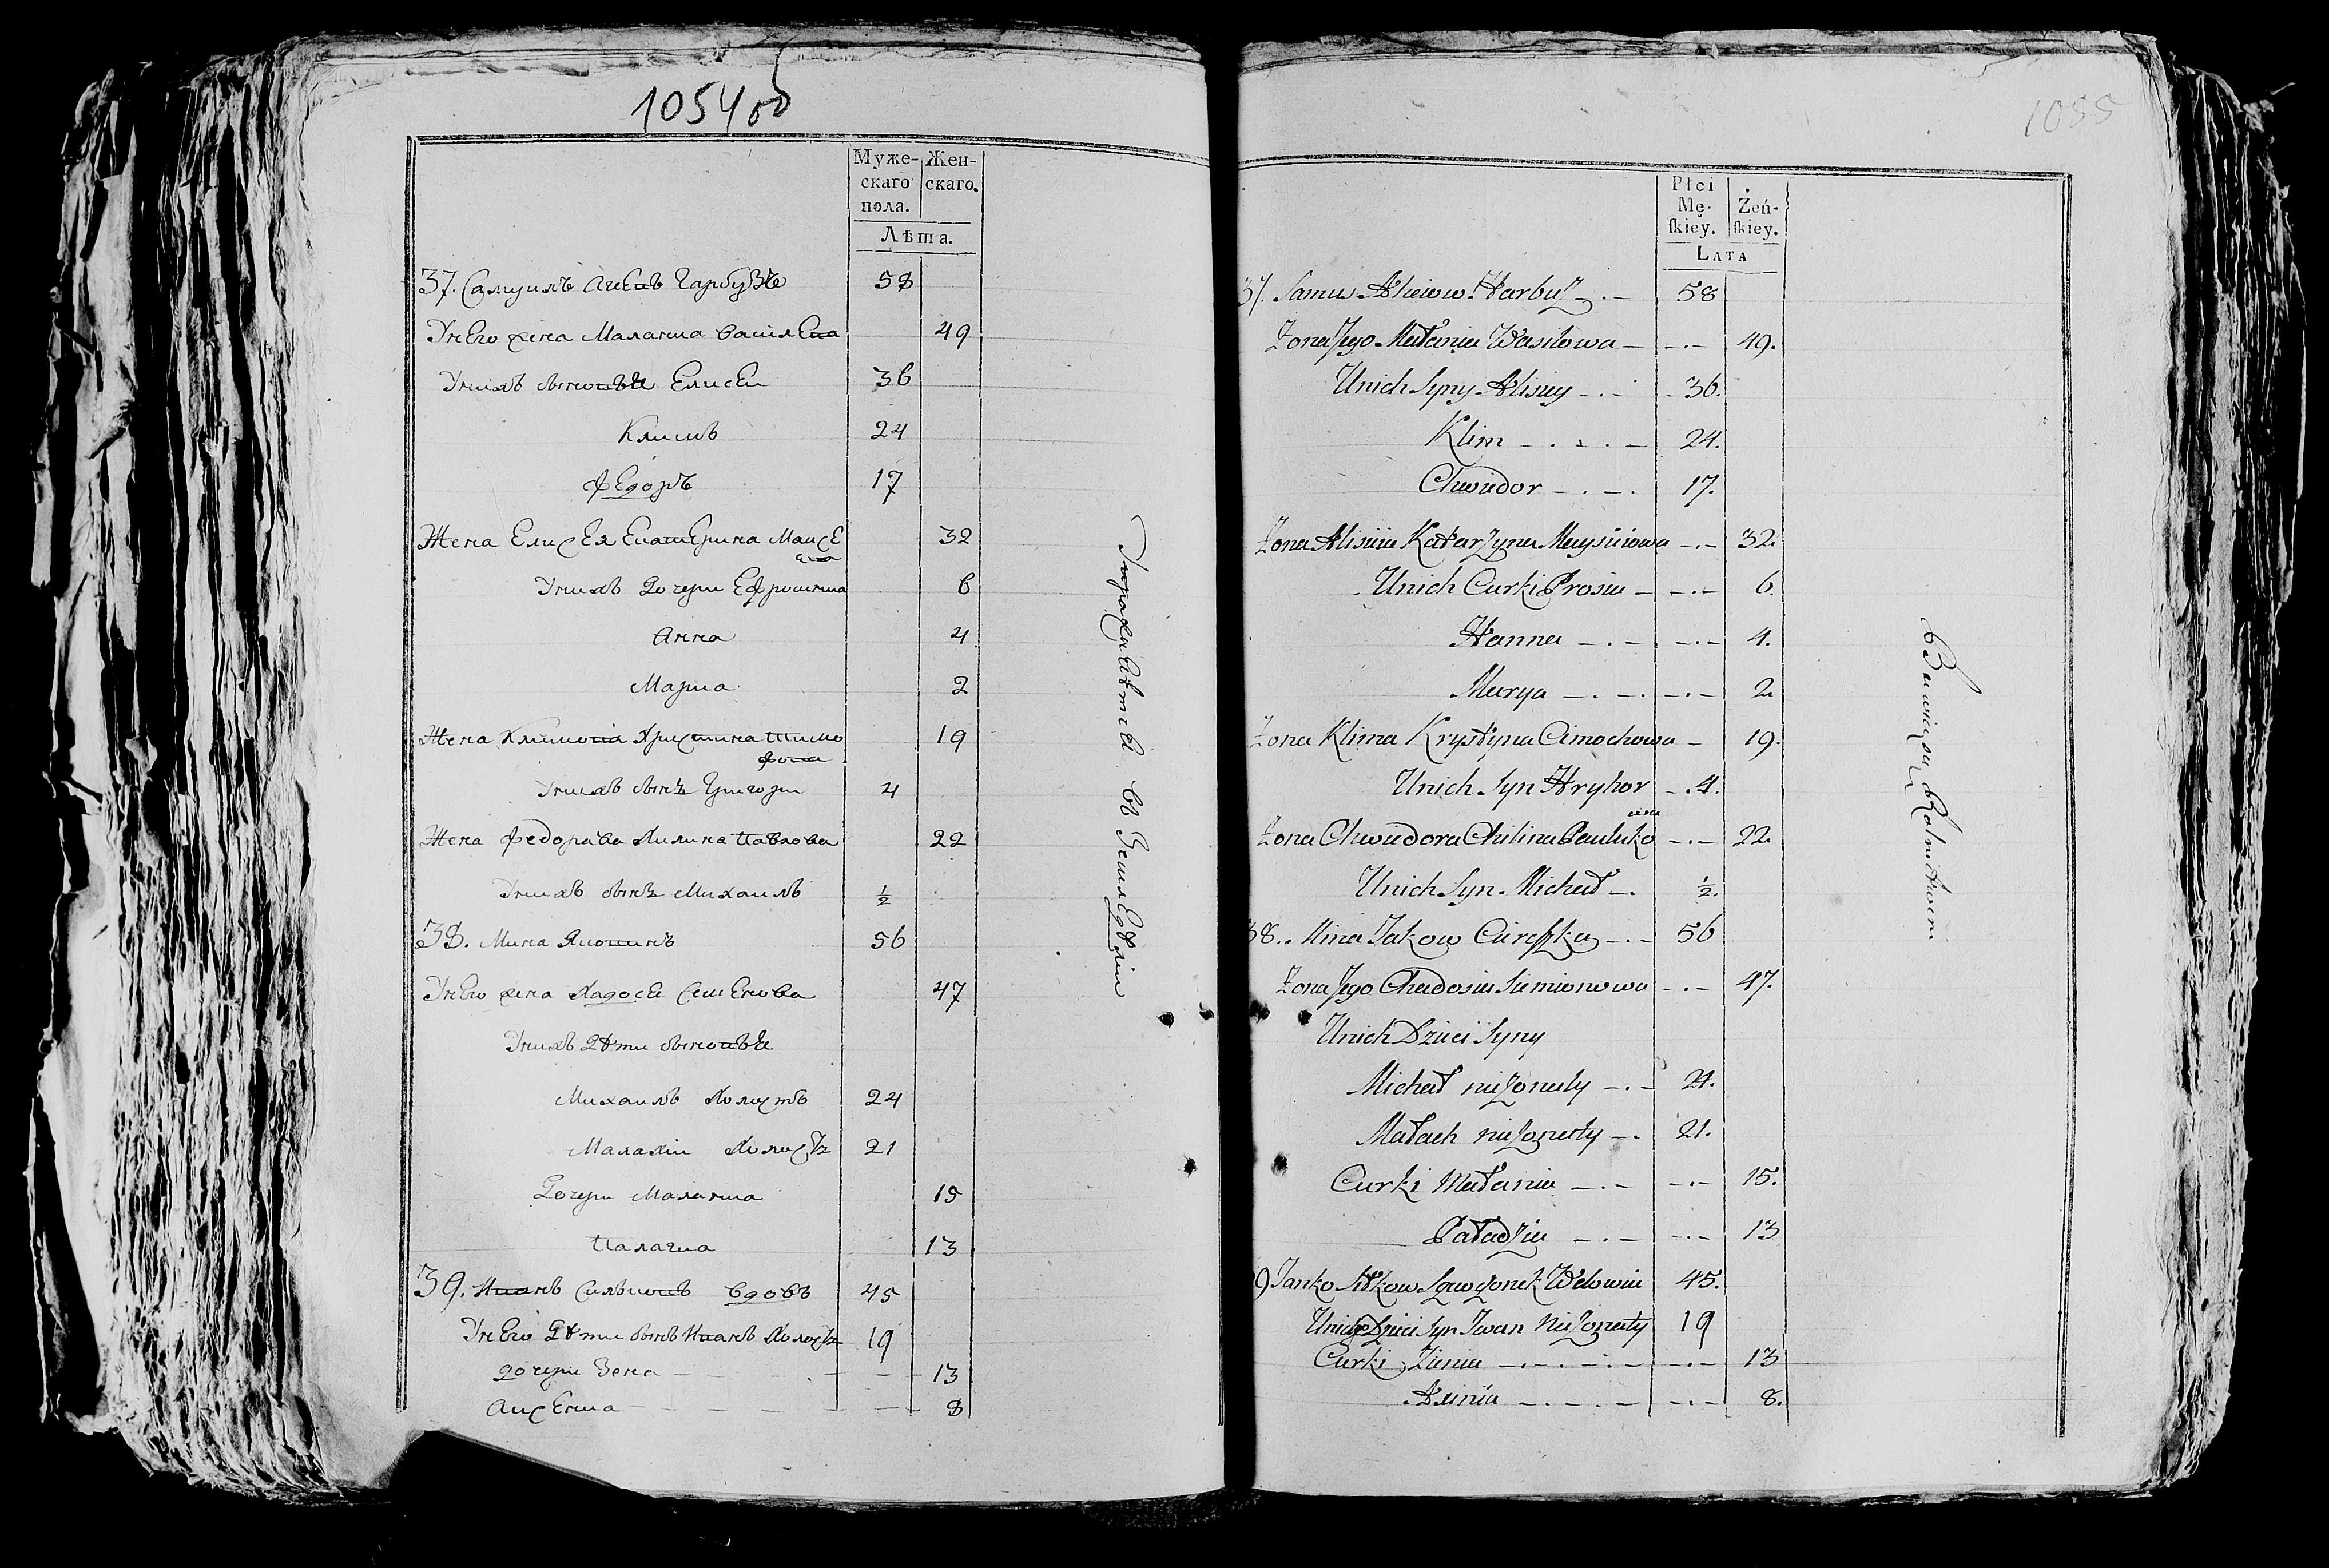 1054 об
Муже-
скаго
пола.
Жен-
скаго.
Лѣта.
37. Самуилъ Агеевъ Гарбузъ 58
У него жена Маланиа Василева 49
У нихъ сыновья Елисеи 36
Климъ 24
Федоръ 17
Жена Елисея Екатерина Маисе
ева 32
У нихъ дочери Ефросиниа 6
Анна 4
Мариа 2
Жена Климова Христина Тимо
фова 19
У нихъ сынъ Григори 4
Жена Федорава Хилина Павлова 22
У нихъ сынъ Михаилъ ½
38. Мина 56
У него жена Хадосья Семенова 47
У нихъ дѣти сыновья
Михаилъ холостъ 24
Малахіи холостъ 21
Дочери Маланиа 15
Палагиа 13
39. Иванъ вдовъ 45
У него дѣти сынъ Иванъ холостъ 19
дочери Зена 13
Аксениа 8
1055
Płci
Mę-
skiey.
Żeń-
skiey.
Lata
37. Samus Aheiow Harbuz 58
Zona Jego Małania Wasilowa 49.
Unich Syny Alisiey 36.
Klim 24.
Chwiedor 17.
Zona Alisieia Katarzyna Mayseiowa 32
Unich Curki Prosia 6.
Hanna 4.
Marya 2
Zona Klima Krystyna Cimochowa 19.
Unich Syn Hryhor 4.
Zona Chwiedora Chilina Pauluko
wa 22
Unich Syn Michał ½.
38. Mina Jakow 56
Zona Jego Chadosia Siemionowa 47.
Unich Dzieci Syny
Michał nieżonaty 24.
Małach nieżonaty 21.
Curki Małania 15.
Paładzia 13
39 Janko Wdowiec 45.
Unich Dzieci Syn Iwan Nieżonaty 19
Curki Zienia 13
Axinia 8.